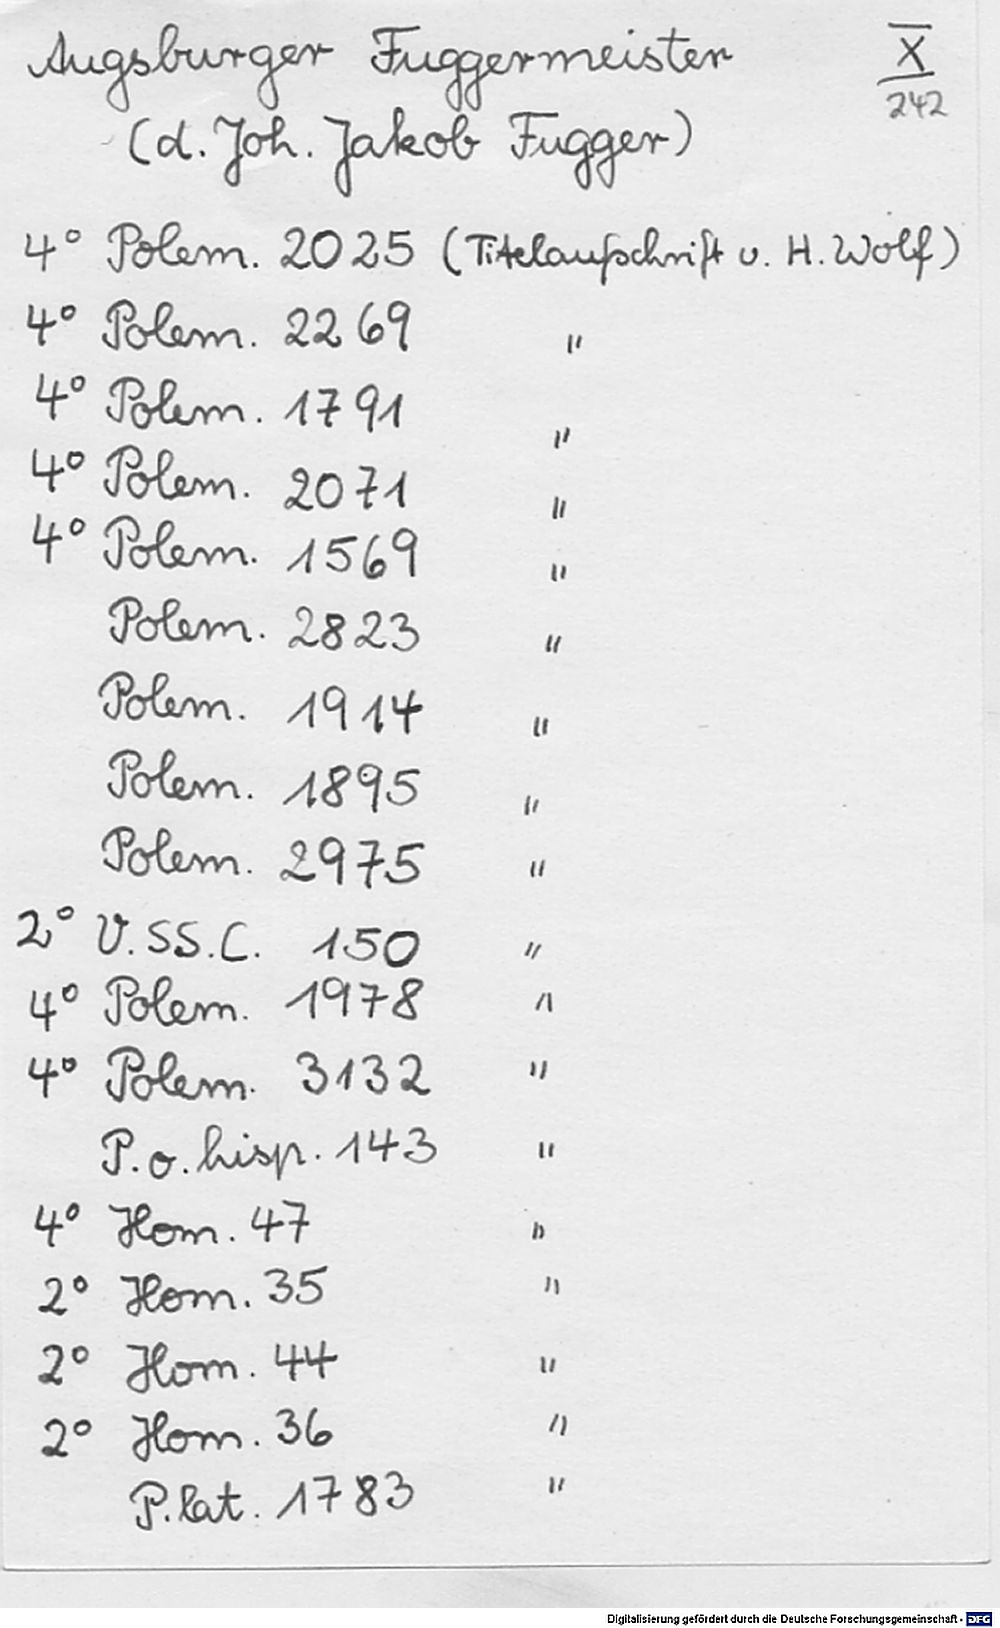 Augsburger Fuggermeister
X
242
(d. Joh. Jakob Fugger)
4° Polem. 2025 (Titelaufschrift v. H. Wolf)
4° Polem. 2269 "
4° Polem. 1791 "
4° Polem. 2071 "
4° Polem. 1569 "
Polem. 2823 "
Polem. 1914 "
Polem. 1895 "
Polem. 2975 "
2° V.SS.C. 150 "
4° Polem. 1978 "
4° Polem. 3132 "
P.o.hisp. 143 "
4° Hom. 47 "
2° Hom. 35 "
2° Hom. 44 "
2° Hom. 36 "
P.lat. 1783 "
Digitalisierung gefördert durch die Deutsche Forschungsgemeinschaft - DFG